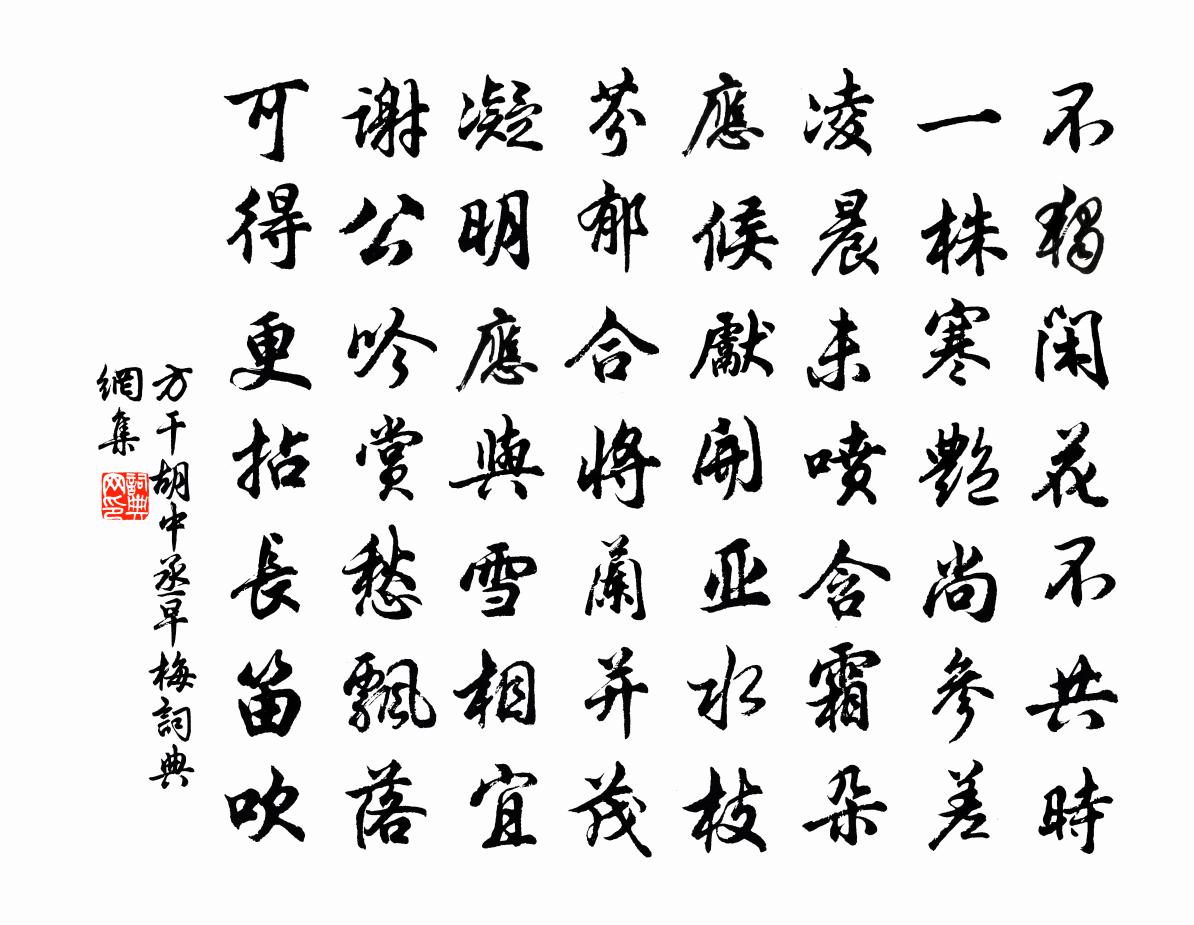 不獨閑花不共時
一株寒艷尚參差
凌晨未噴含霜朵
應候獻開亚水枝
芬郁合將蘭并茂
凝明應與雪相宜
謝公吟賞愁飄落
可得更拈長笛吹
方干胡中丞早梅詞典
網集
詞典
网印